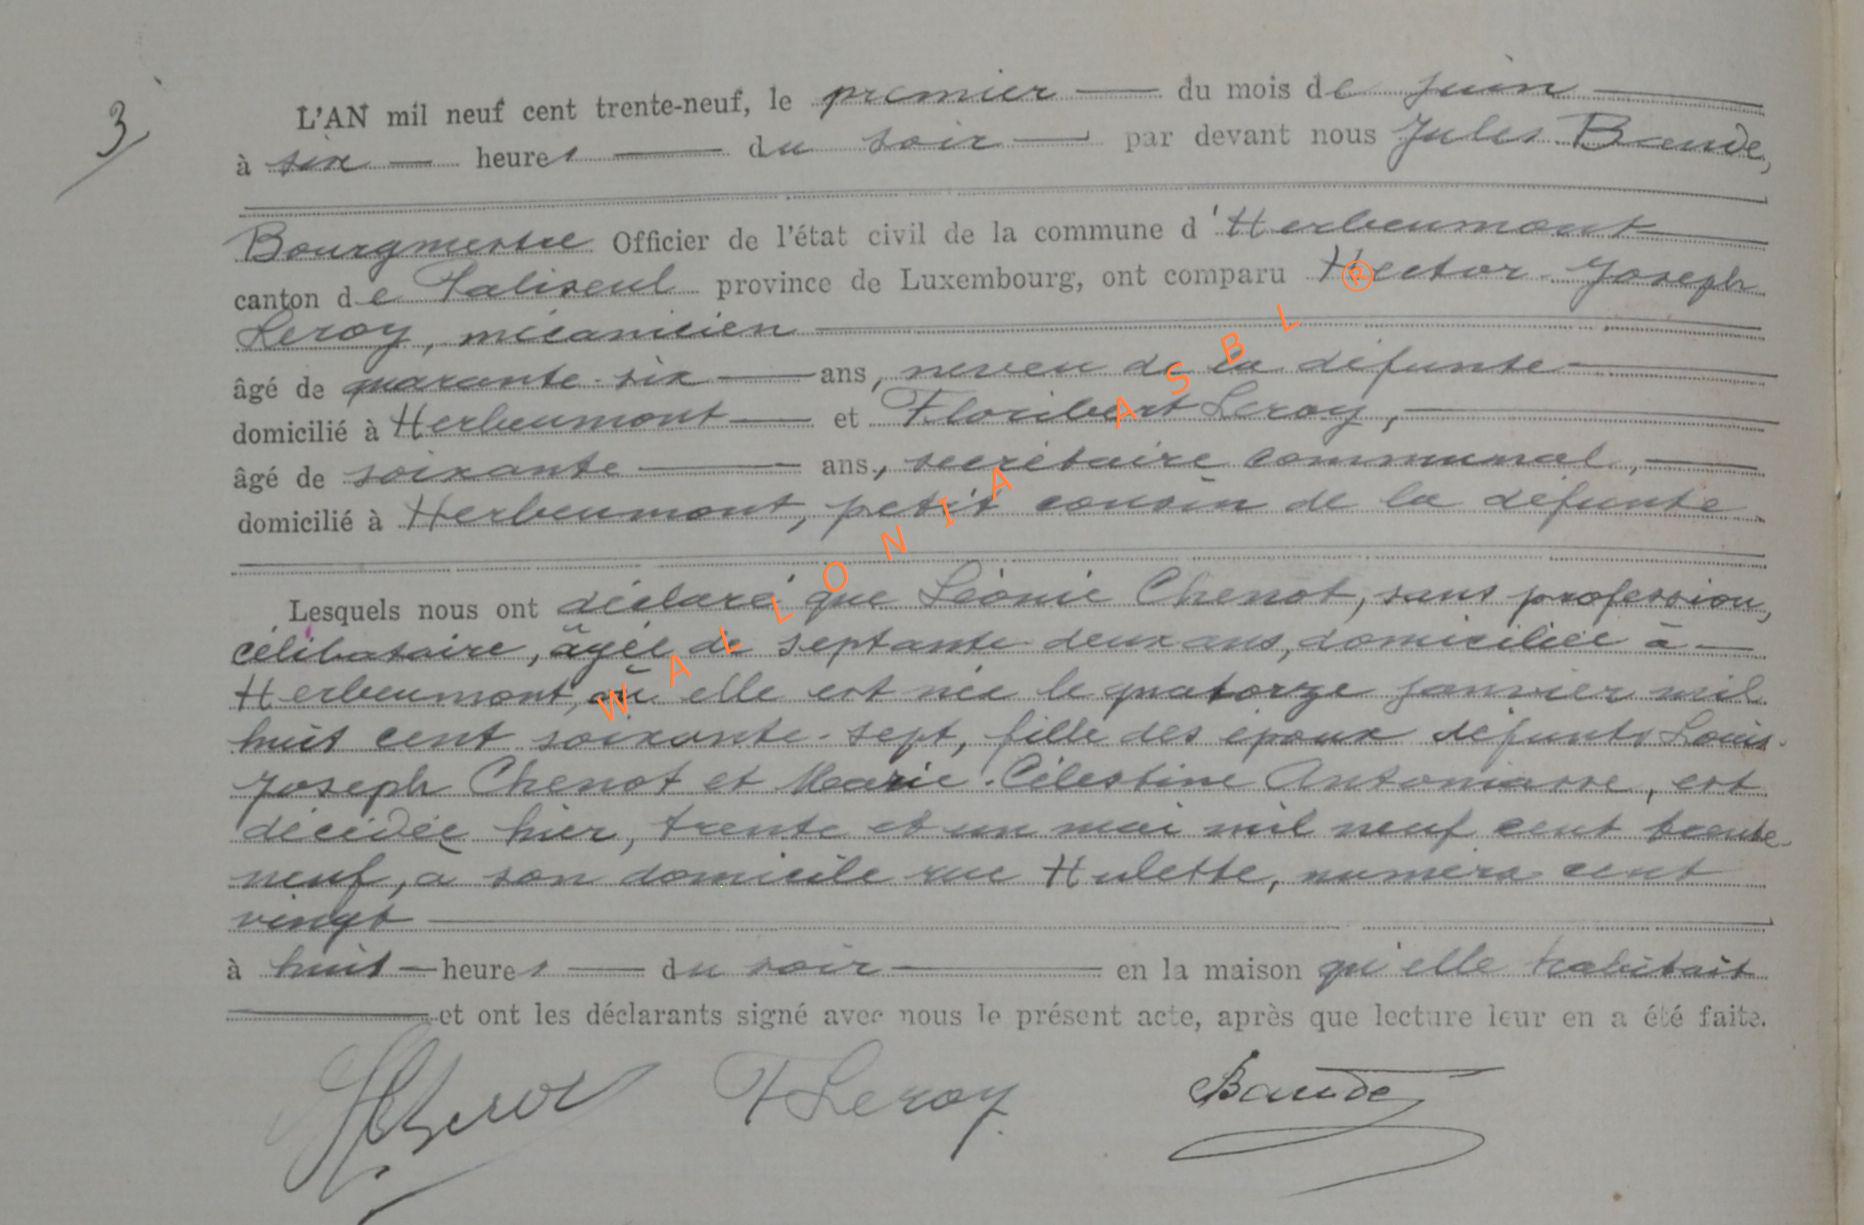 3/
L'AN mil neuf cent trente-neuf, le premier — du mois de juin —
à six — heures — du soir — par devant nous Jules Baude,
Bourgmestre Officier de l'état civil de la commune d'Herbeumont
canton de Paliseul province de Luxembourg, ont comparu Hector Joseph
Leroy, mécanicien —
âgé de quarante-six — ans, neveu de la défunte —
domicilié à Herbeumont — et Floribert Leroy, —
âgé de soixante — ans, secrétaire communal, —
domicilié à Herbeumont, petit cousin de la défunte
Lesquels nous ont déclaré que Léonie Chenot, sans profession,
célibataire, âgée de septante-deux ans, domiciliée à —
Herbeumont, où elle est née le quatorze janvier mil
huit cent soixante-sept, fille des époux défunts Louis-
Joseph Chenot et Marie-Célestine Antoniasse, est
décédée hier, trente et un mai mil neuf cent trente-
neuf, à son domicile rue Hulette, numéro cent
vingt —
à huit — heures — du soir — en la maison qu'elle habitait
— et ont les déclarants signé avec nous le présent acte, après que lecture leur en a été faite.
HLeroy FLeroy Baude
WALLONIA ASBL ®